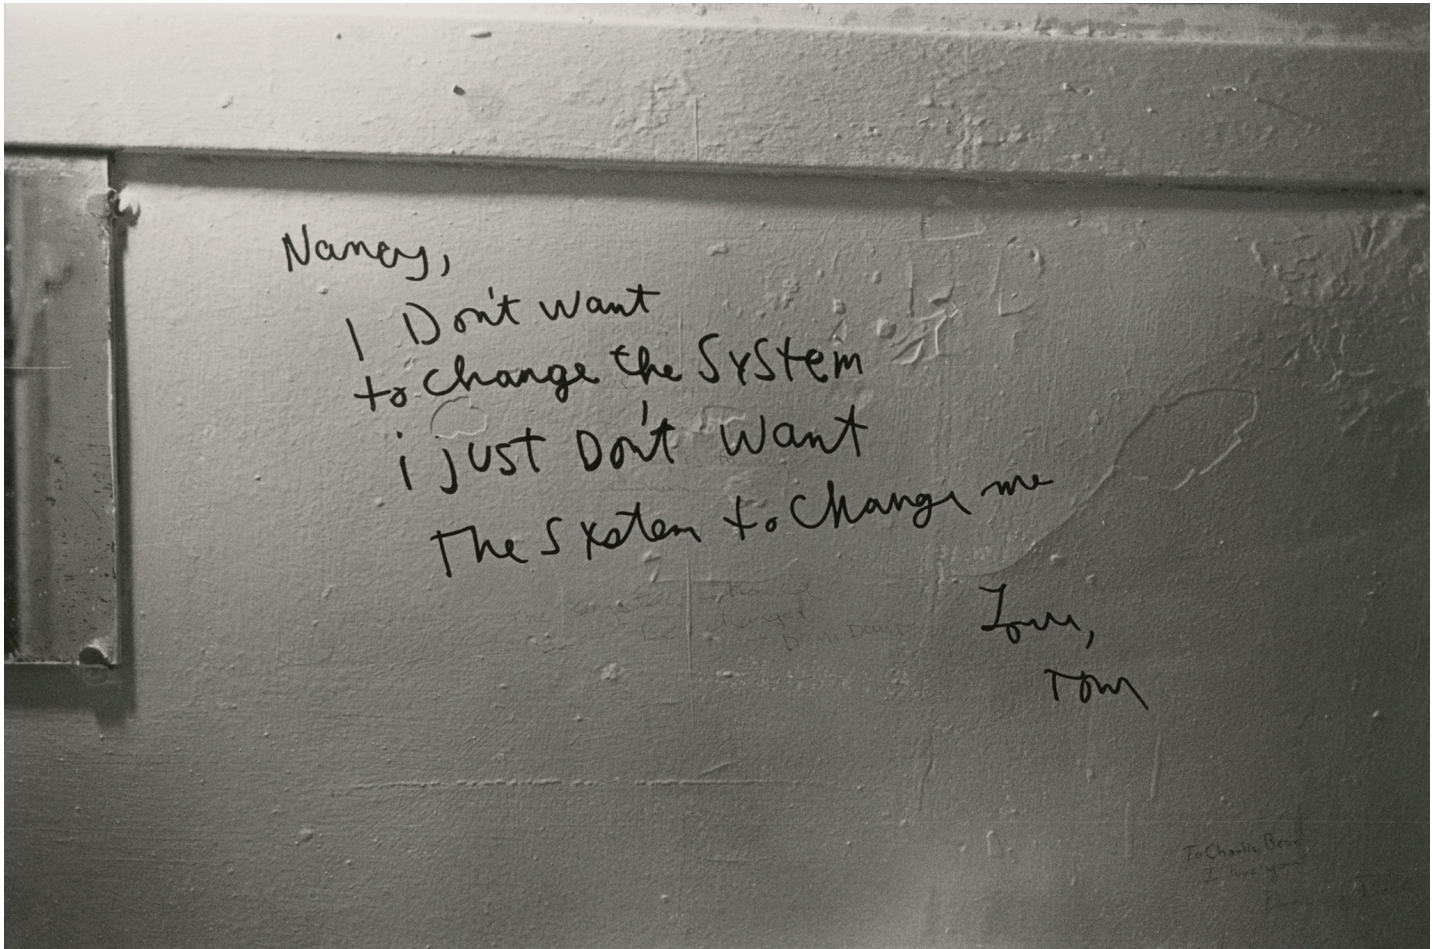 Nancy,
I Don't Want
to change the System
i just Don't Want
The System to Change me
Love,
Tom
To Charlie Bear
I love you